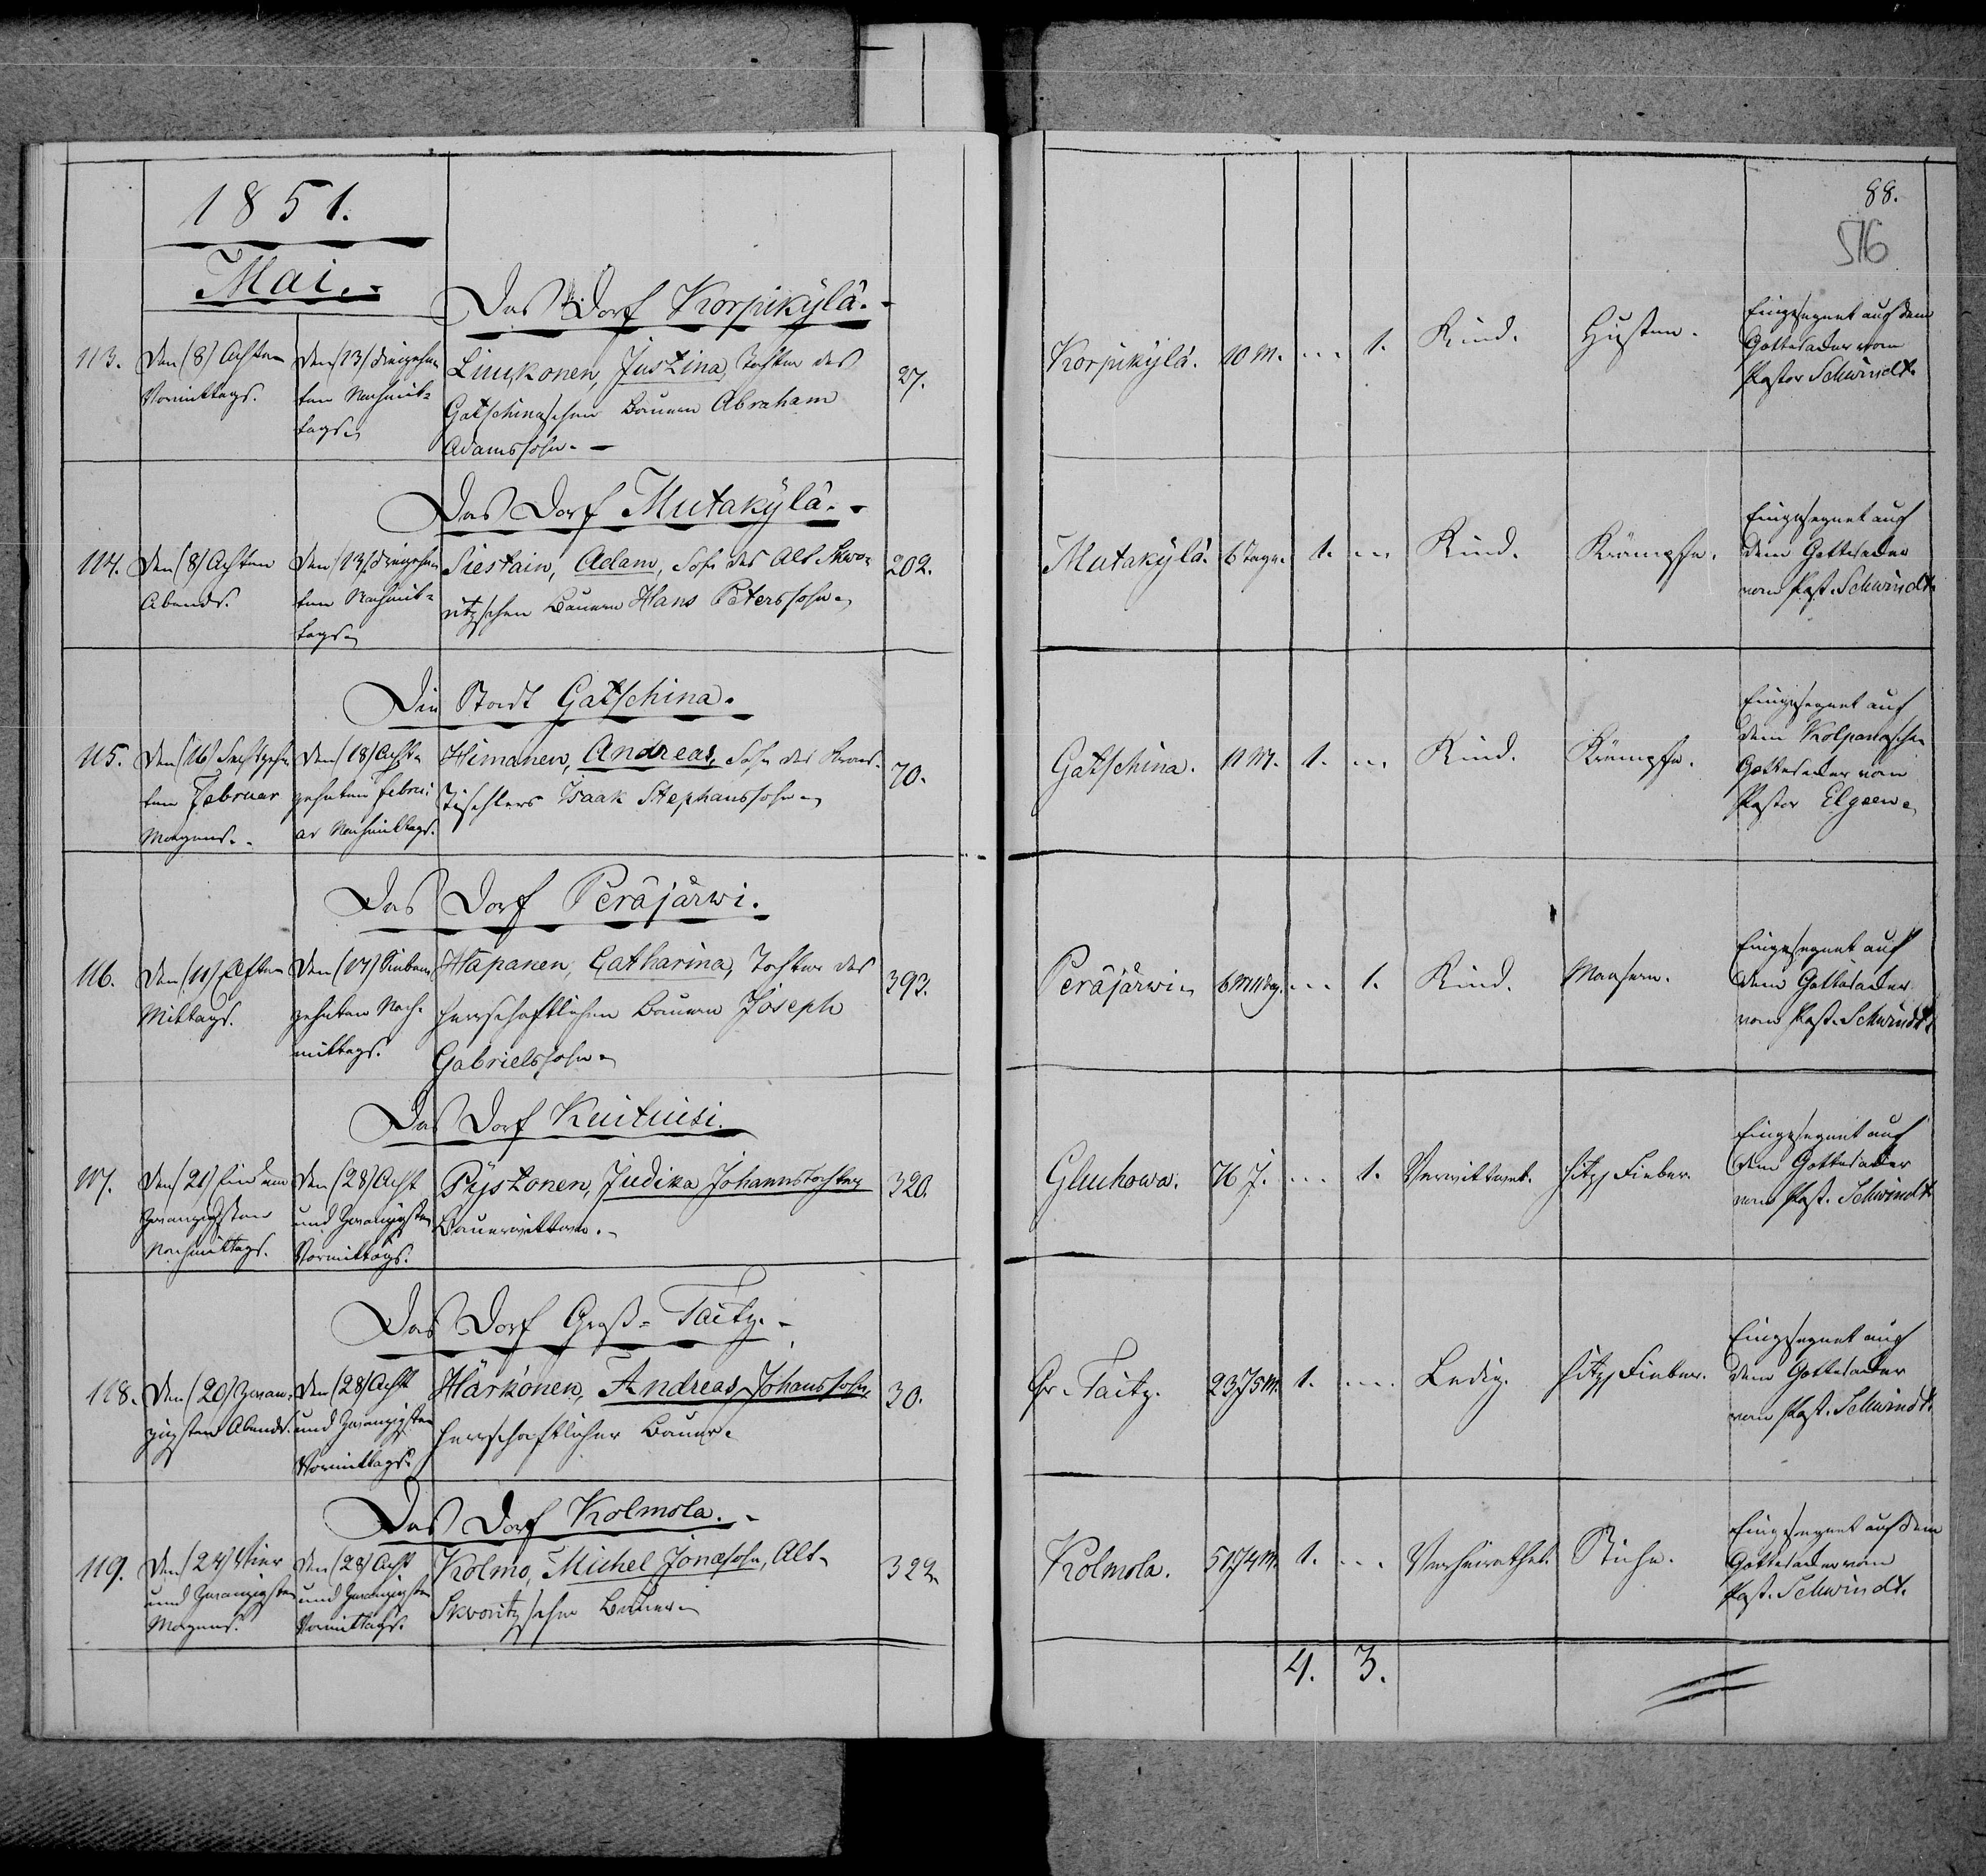 1851.
Mai.
Das Dorf Korpikylä.
113. Den (8) Achten
Vormittags.
Den (13) dreizehn-
ten Nachmit-
tags
Liukkonen, Justina, Tochter des
Gatschinaschen Bauern Abraham
Adamssohn.
27.
Das Dorf Mutakylä.
114. Den (8) Achten
Abends.
Den (13) dreizehn-
ten Nachmit-
tags
Siestain, Adam, Sohn des Alt Skwo-
ritzschen Bauern Hans Peterssohn
202.
Die Stadt Gatschina.
115. Den (16) Sechszehn-
ten Februar
Morgens.
Den (18) Acht-
zehnten Febru-
ar Nachmittags.
Himanen, Andreas, Sohn des Krons-
Tischlers Isaak Stephanssohn
70.
Das Dorf Peräjärwi.
116. Den (11) Elften
Mittags.
Den (17) Sieben-
zehnten Nach-
mittags.
Häpanen, Catharina, Tochter des
herrschaftlichen Bauern Joseph
Gabrielssohn
393.
Das Dorf Kuituisi.
117. Den (21) Ein und
Zwanzigsten
Nachmittags.
Den (28) Acht
und Zwanzigsten
Vormittags.
Pystonen, Judika Johannstochter
Bauerwittwe.
320.
Das Dorf Groß-Taitz.
118. Den (20) Zwan-
zigsten Abends.
Den (28) Acht
und Zwanzigsten
Vormittags.
Härkönen, Andreas Johanssohn
herrschaftlicher Bauer.
30.
Das Dorf Kolmola.
119. Den (24) Vier
und Zwanzigsten
Morgens.
Den (28) Acht
und Zwanzigsten
Vormittags.
Kolmo, Michel Jonassohn, Alt-
Skworitzscher Bauer
322.
88.
516
Korpikylä. 10 M. ... 1. Kind. Husten.
Eingesegnet auf dem
Gottesacker vom
Pastor Schwindt.
Mutakylä. 6 Tage. 1. ... Kind. Krämpfe.
Eingesegnet auf
dem Gottesacker
vom Past. Schwindt.
Gatschina. 11 M. 1. ... Kind. Krämpfe.
Eingesegnet auf
dem Kolpanaschen
Gottesacker vom
Pastor Elgren
Peräjärwi ... 1. Kind. Masern.
Eingesegnet auf
dem Gottesacker
vom Past. Schwindt.
Gluchowa. 76 J. ... 1. Verwittwet. Hitz. Fieber.
Eingesegnet auf
dem Gottesacker
vom Past. Schwindt.
Gr. Taitz. 23 J 5 M. 1. ... Ledig. Hitz. Fieber.
Eingesegnet auf
dem Gottesacker
vom Past. Schwindt.
Kolmola. 51 J 4 M. 1. ... Verheirathet. Stiche.
Eingesegnet auf dem
Gottesacker vom
Past. Schwindt.
4. 3.